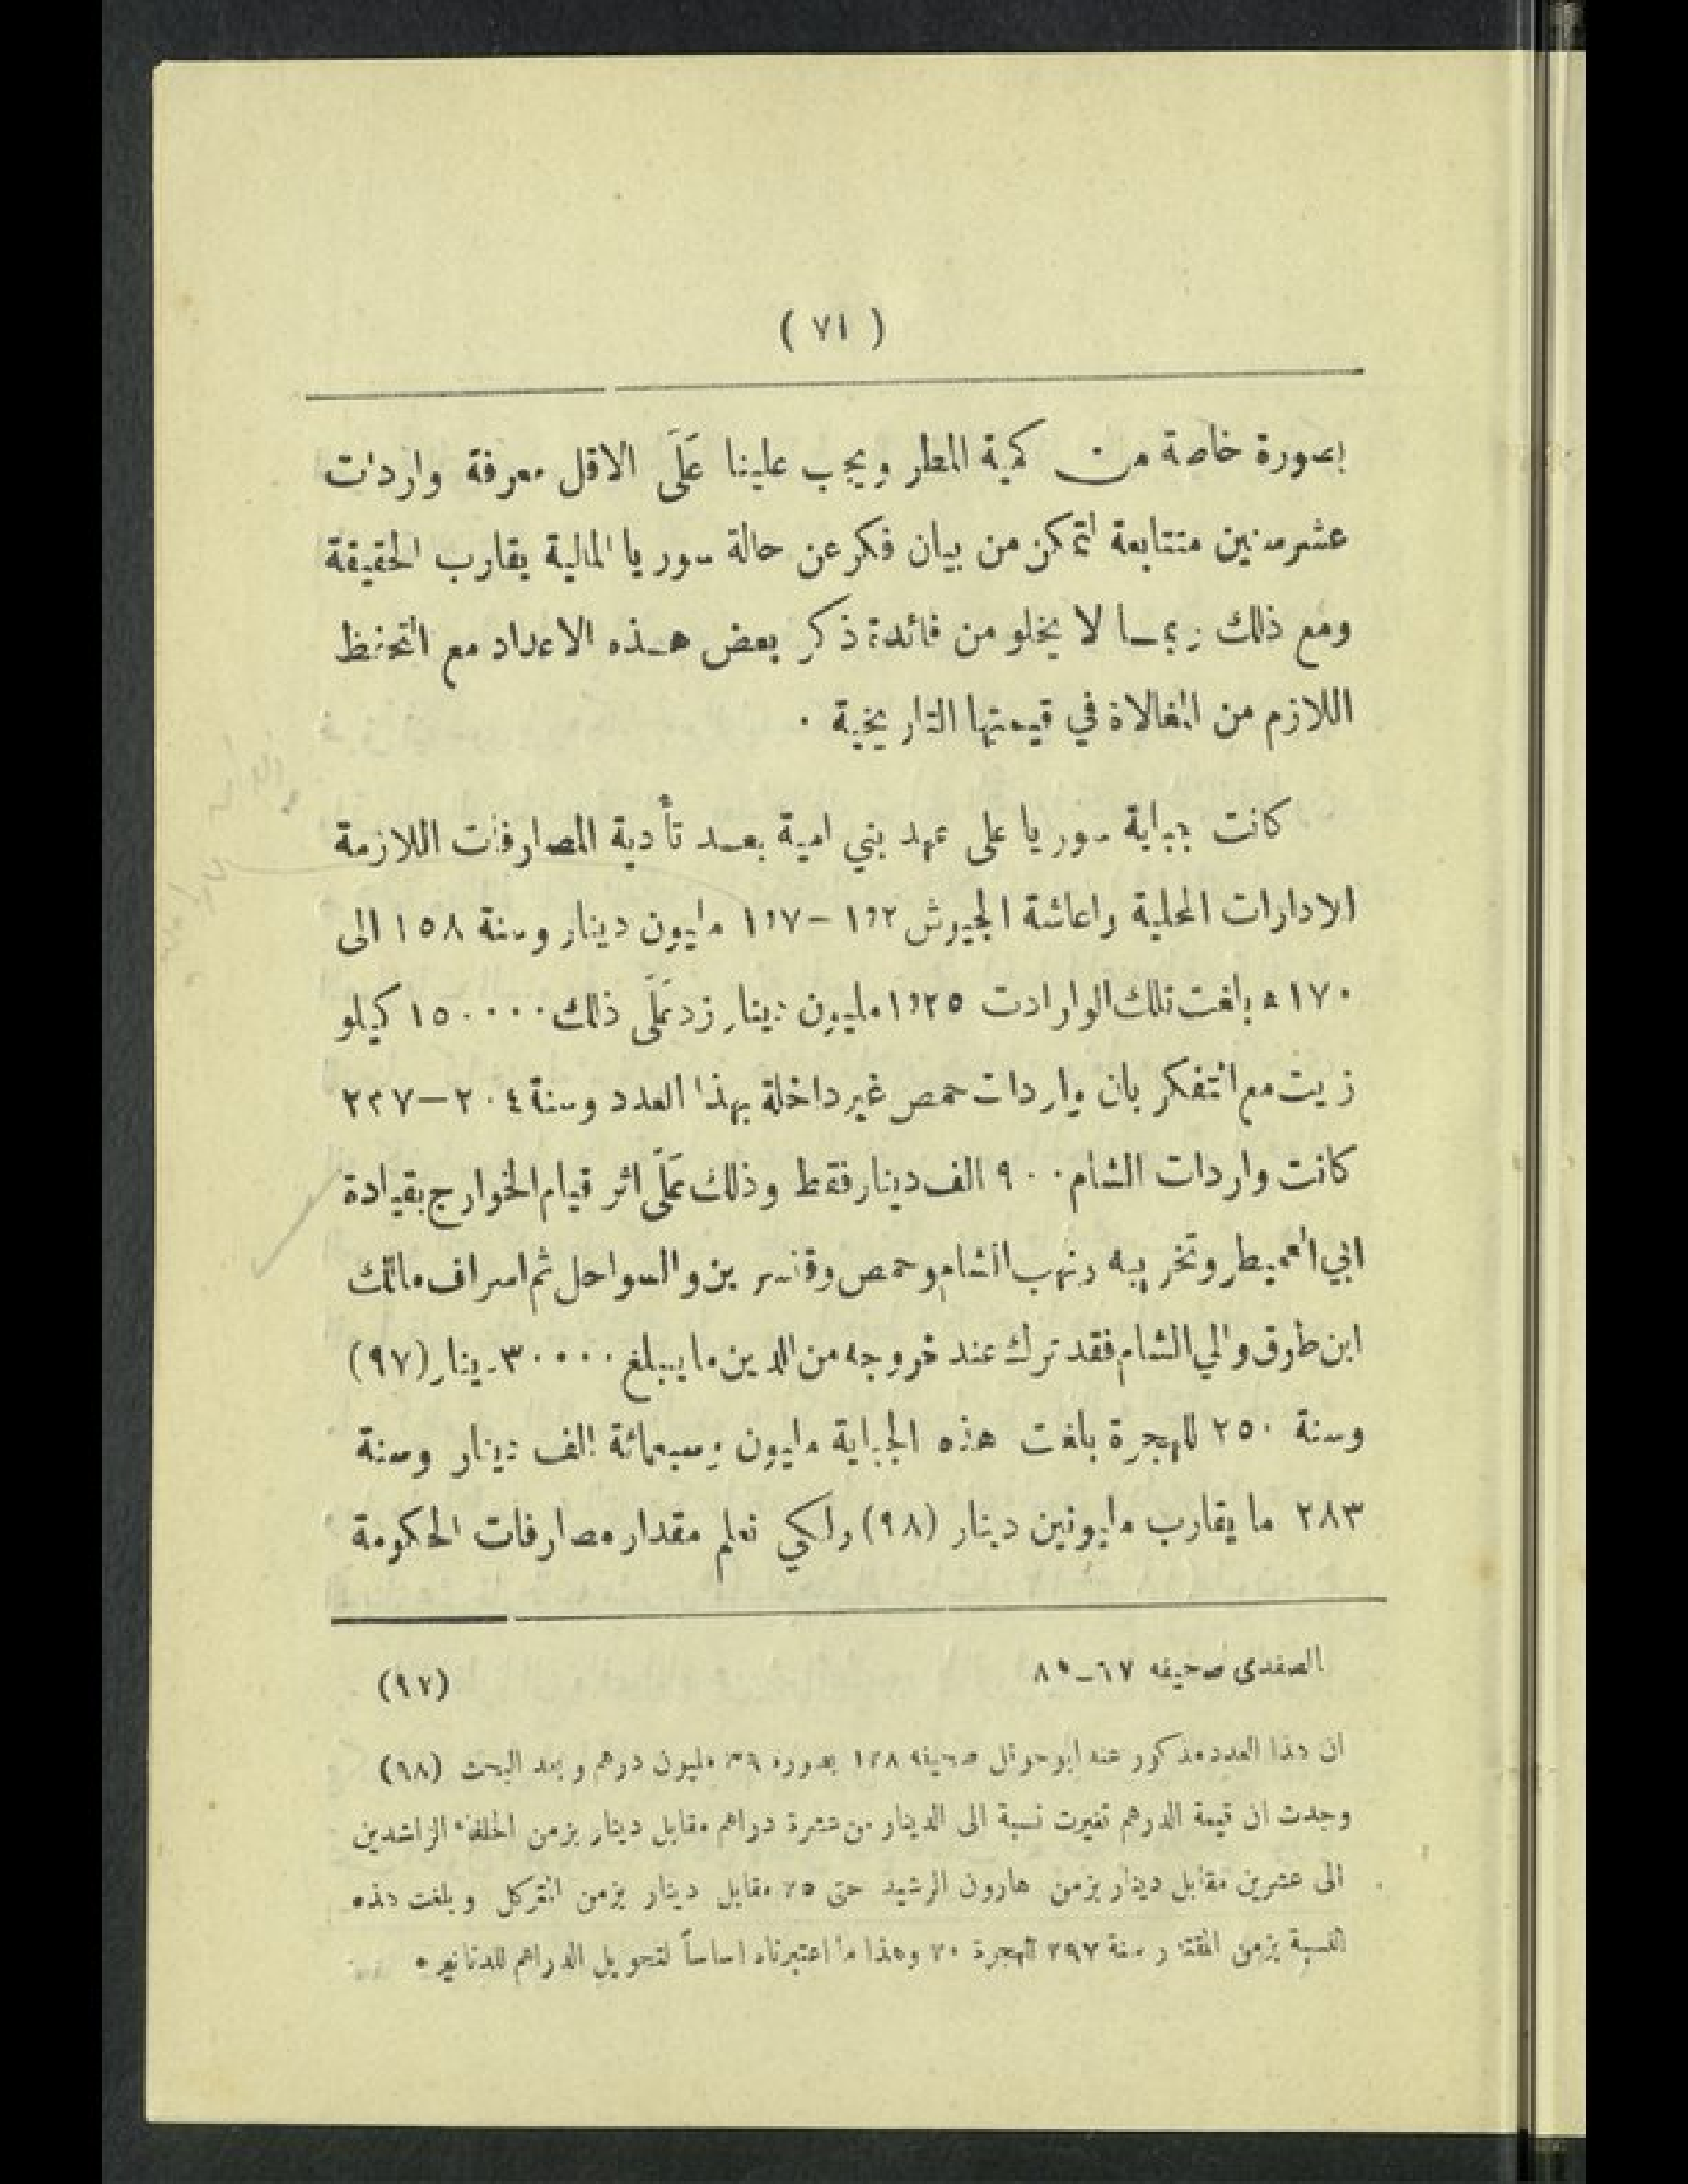 ( ٧١ )
بصورة خاصة من كمية المطر ويجب علينا عَلَى الاقل معرفة واردات
عشر سنين متتابعة لنتمكن من بيان فكر عن حالة سوريا المالية يقارب الحقيقة
ومع ذلك ربما لا يخلو من فائدة ذكر بعض هذه الاعداد مع التحفظ
اللازم من المغالاة في قيمتها التاريخية ٠
كانت جباية سوريا على عهد بني امية بعد تأدية المصارفات اللازمة
الادارات المحلية واعاشة الجيوش ١٫٢ – ١٫٧ مليون دينار وسنة ١٥٨ الى
١٧٠ ه بلغت تلك الوارادت ١٫٢٥ مليون دينار زد عَلَى ذلك ١٥٠٠٠٠ كيلو
زيت مع التفكر بان واردات حمص غير داخلة بهذا العدد وسنة ٢٠٤ – ٢٣٧
كانت واردات الشام ٩٠٠ الف دينار فقط وذلك عَلَى اثر قيام الخوارج بقيادة
ابي العميطر وتخريبه ونهب الشام وحمص وقنسرين والسواحل ثم اسراف مالك
ابن طوق والي الشام فقد ترك عند خروجه من الدين ما يبلغ ٣٠٠٠٠ دينار (٩٧)
وسنة ٢٥٠ للهجرة بلغت هذه الجباية مليون وسبعمائة الف دينار وسنة
٢٨٣ ما يقارب مليونين دينار (٩٨) ولكي نعلم مقدار مصارفات الحكومة
الصفدى صحيفه ٦٧ـ٨٥ (٩٧)
ان هذا العدد مذكور عند ابو حوقل صحيفه ١٢٨ بصورة ٣٩ مليون درهم وبعد البحث (٩٨)
وجدت ان قيمة الدرهم تغيرت نسبة الى الدينار من عشرة دراهم مقابل دينار بزمن الخلفاء الراشدين
الى عشرين مقابل دينار بزمن هارون الرشيد حتى ٢٥ مقابل دينار بزمن المتوكل وبلغت هذه
النسبة بزمن المقتدر سنة ٢٩٧ للهجرة ٢٠ وهذا ما اعتبرناه اساساً لتحويل الدراهم للدنانير ٠